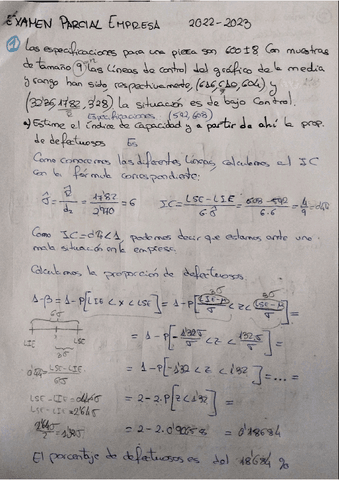 EXAMEN PARCIAL EMPRESA 2022-2023
1 Las especificaciones para una pieza son 600±8 Con muestras
de tamaño 9, las líneas de control del gráfico de la media
y rango han sido, respectivamente, (616, 610, 604) y
(32'36, 17'82, 3'28) La situación es de bajo control.
Especificaciones (592, 608)
a) Estime el índice de capacidad y a partir de ahí la prop.
de defectuosos
Como conocemos las diferentes líneas, calculamos el IC
con la fórmula correspondiente:
σ̂ = / d2 = 17'82 / 2'970 = 6 IC = LSE - LIE / 6·σ̂ = 608 - 592 / 6·6 = 4/9 =
Como IC = <1, podemos decir que estamos ante una
mala situación en la empresa.
Calculamos la proporción de defectuosos
1-β = 1-P[LIE < x < LSE] = 1-P[LIE-μ / σ < z < LSE-μ / σ] =
6σ
= 1-P[-1'32σ / σ < z < 1'32σ / σ] =
LIE LSE
3σ
LSE-LIE / 6σ
= 1-P[-1'32 < z < 1'32] = ... =
LSE-LIE =
LSE-LIE = 2'64σ
= 2-2·P[z < 1'32] =
= 2-2· = 0'18684
El porcentaje de defectuosos es del 18'684 %